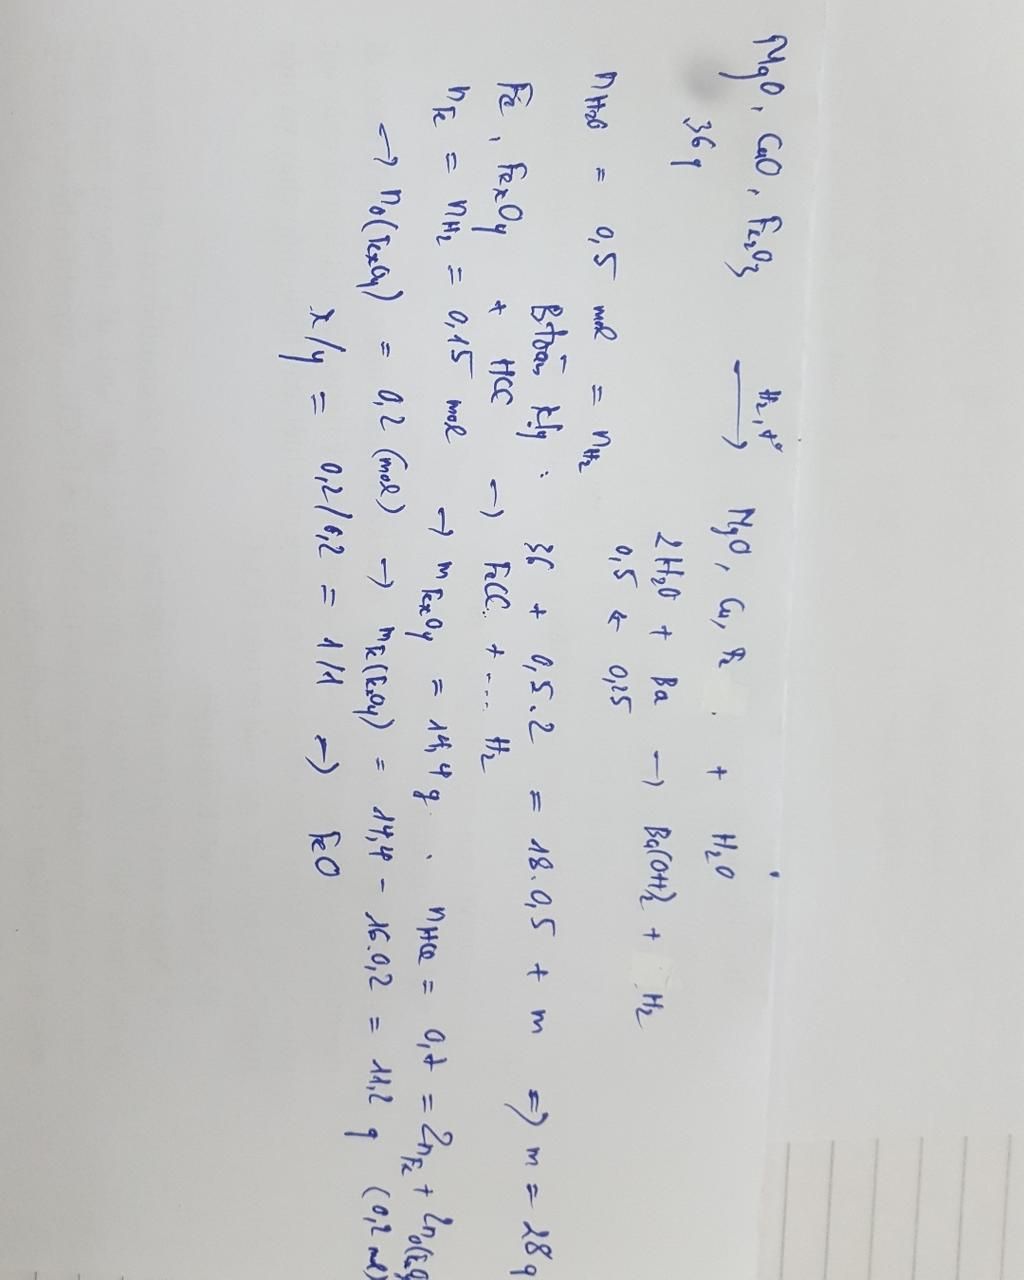 MgO, CuO, Fe₂O₃ —H₂, t°→ MgO, Cu, Fe + H₂O
36 g
2H₂O + Ba → Ba(OH)₂ + H₂
0,5 ← 0,25
n H₂O = 0,5 mol = n H₂
Btoàn klg : 36 + 0,5.2 = 18.0,5 + m => m = 28g
Fe, FexOy + HCl → FeCl.. + .... H₂
n Fe = n H₂ = 0,15 mol → m FexOy = 14,4 g. n HCl = 0,7 = 2n Fe + 2n O(FexOy
→ n O(FexOy) = 0,2 (mol) → m Fe(FexOy) = 14,4 - 16.0,2 = 11,2 g (0,2 mol)
x/y = 0,2/0,2 = 1/1 → FeO